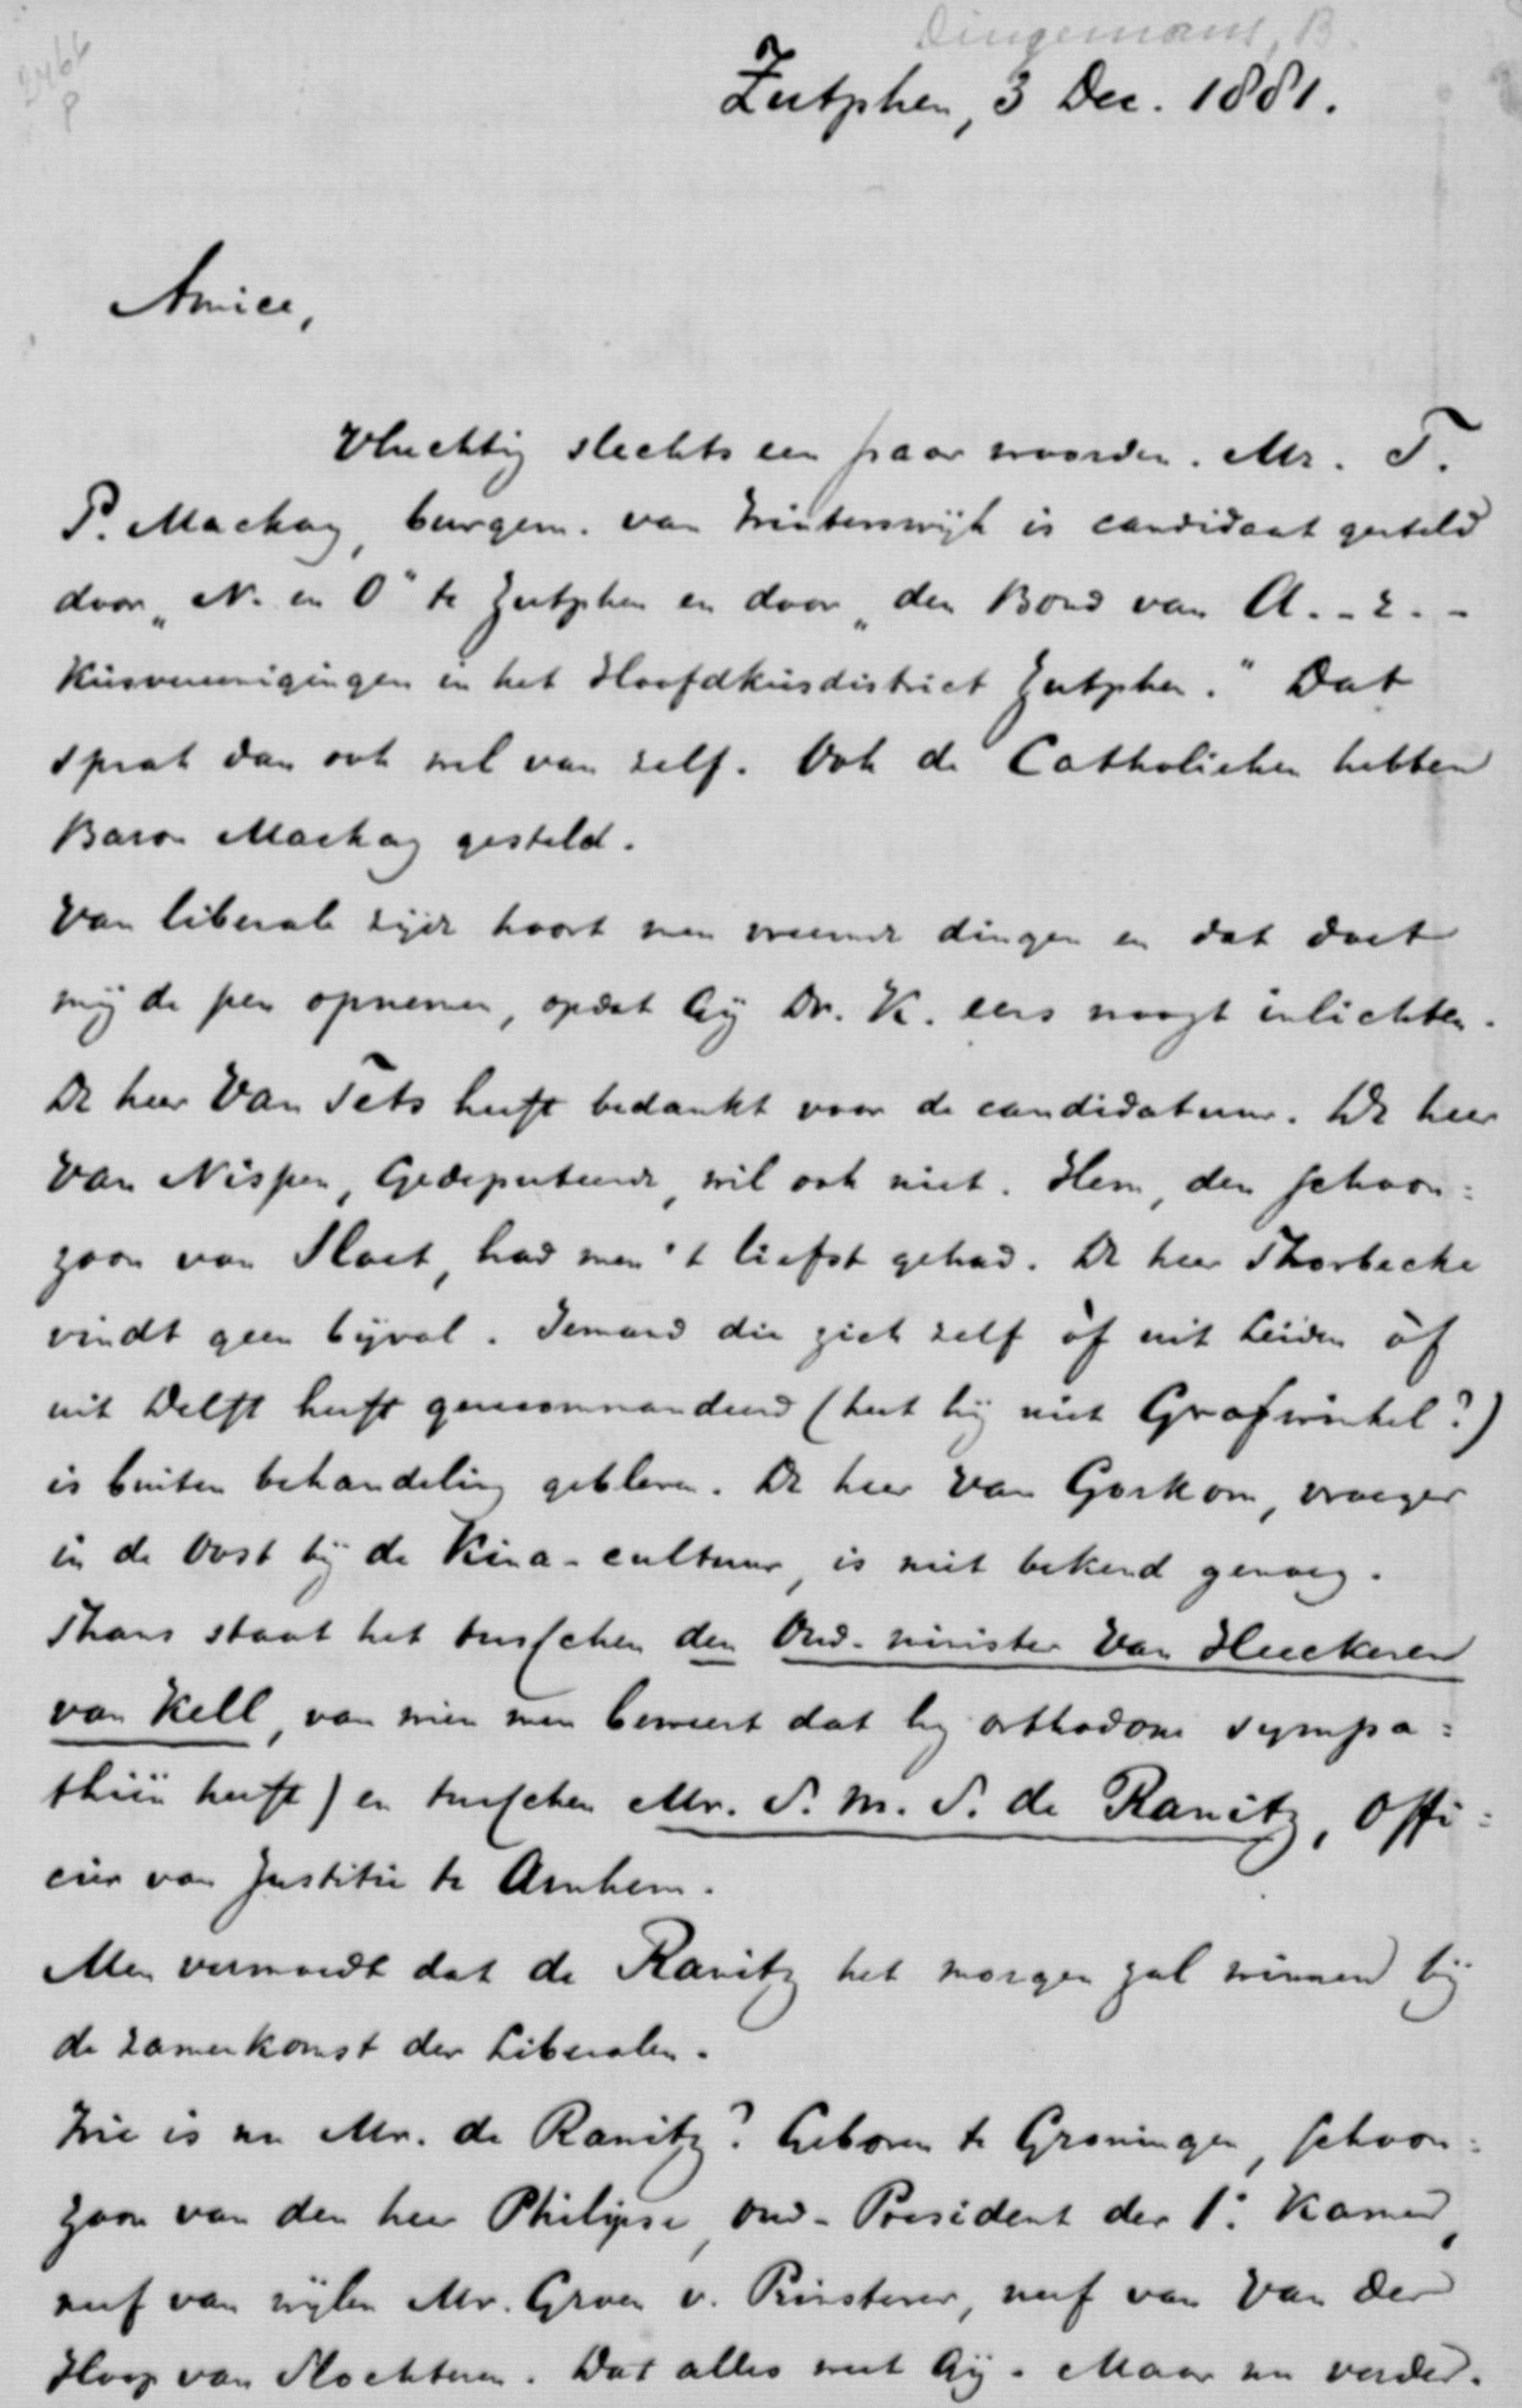 Dingemans, B.
2466
P
Zutphen, 3 Dec. 1881.
Amice,
Vluchtig slechts een paar woorden. Mr. T.
P. Mackay, burgem. van Winterswijk is candidaat gesteld
door „N. en O" te Zutphen en door „den Bond van A.-r.-
Kiesvereenigingen in het Hoofdkiesdistrict Zutphen." Dat
sprak dan ook wel van zelf. Ook de Catholieken hebben
Baron Mackay gesteld.
Van liberale zijde hoort men vreemde dingen en dat doet
mij de pen opnemen, opdat Gij Dr. K. eens moogt inlichten.
De heer Van Tets heeft bedankt voor de candidatuur. De heer
Van Nispen, Gedeputeerde, wil ook niet. Hem, den schoon=
zoon van Sloet, had men 't liefst gehad. De heer Thorbecke
vindt geen bijval. Iemand die zich zelf òf uit Leiden òf
uit Delft heeft gerecommandeerd (heet hij niet Grafwinkel?)
is buiten behandeling gebleven. De heer Van Gorkom, vroeger
in de Oost bij de Kina-cultuur, is niet bekend genoeg.
Thans staat het tusschen den Oud-minister Van Heeckeren
van Kell, van wien men beweert dat hij orthodoxe sympa=
thiën heeft) en tusschen Mr. S. M. S. de Ranitz, Offi=
cier van Justitie te Arnhem.
Men vermoedt dat de Ranitz het morgen zal winnen bij
de zamenkomst der Liberalen.
Wie is nu Mr. de Ranitz? Geboren te Groningen, schoon=
zoon van den heer Philipse, oud-President der 1e Kamer,
neef van wijlen Mr. Groen v. Prinsterer, neef van Van der
Hoop van Slochteren. Dat alles weet Gij. Maar nu verder.